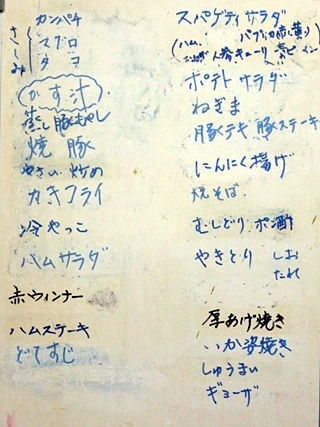 さしみ
カンパチ
マグロ
タヨ
かす汁
蒸し豚もやし
焼豚
やさい炒め
カキフライ
冷やっこ
ハムサラダ
赤ウィンナー
ハムステーキ
どてすじ
スパゲティサラダ
(ハム、パプリカ(赤,黄)
人参 キューリ
ポテトサラダ
ねぎま
豚テキ 豚ステーキ
にんにく揚げ
焼そば
むしどり ポン酢
やきとり しお
たれ
厚あげ焼き
いか姿焼き
しゅうまい
ギョーザ